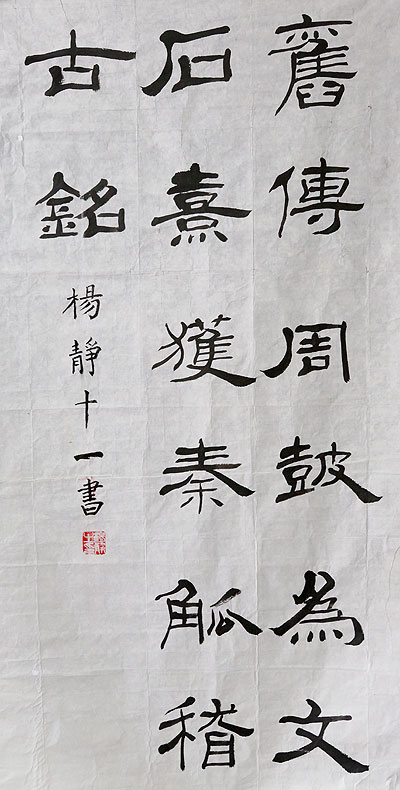 舊傳周皷為文
石熹獲秦觚稽
古銘
楊靜十一書